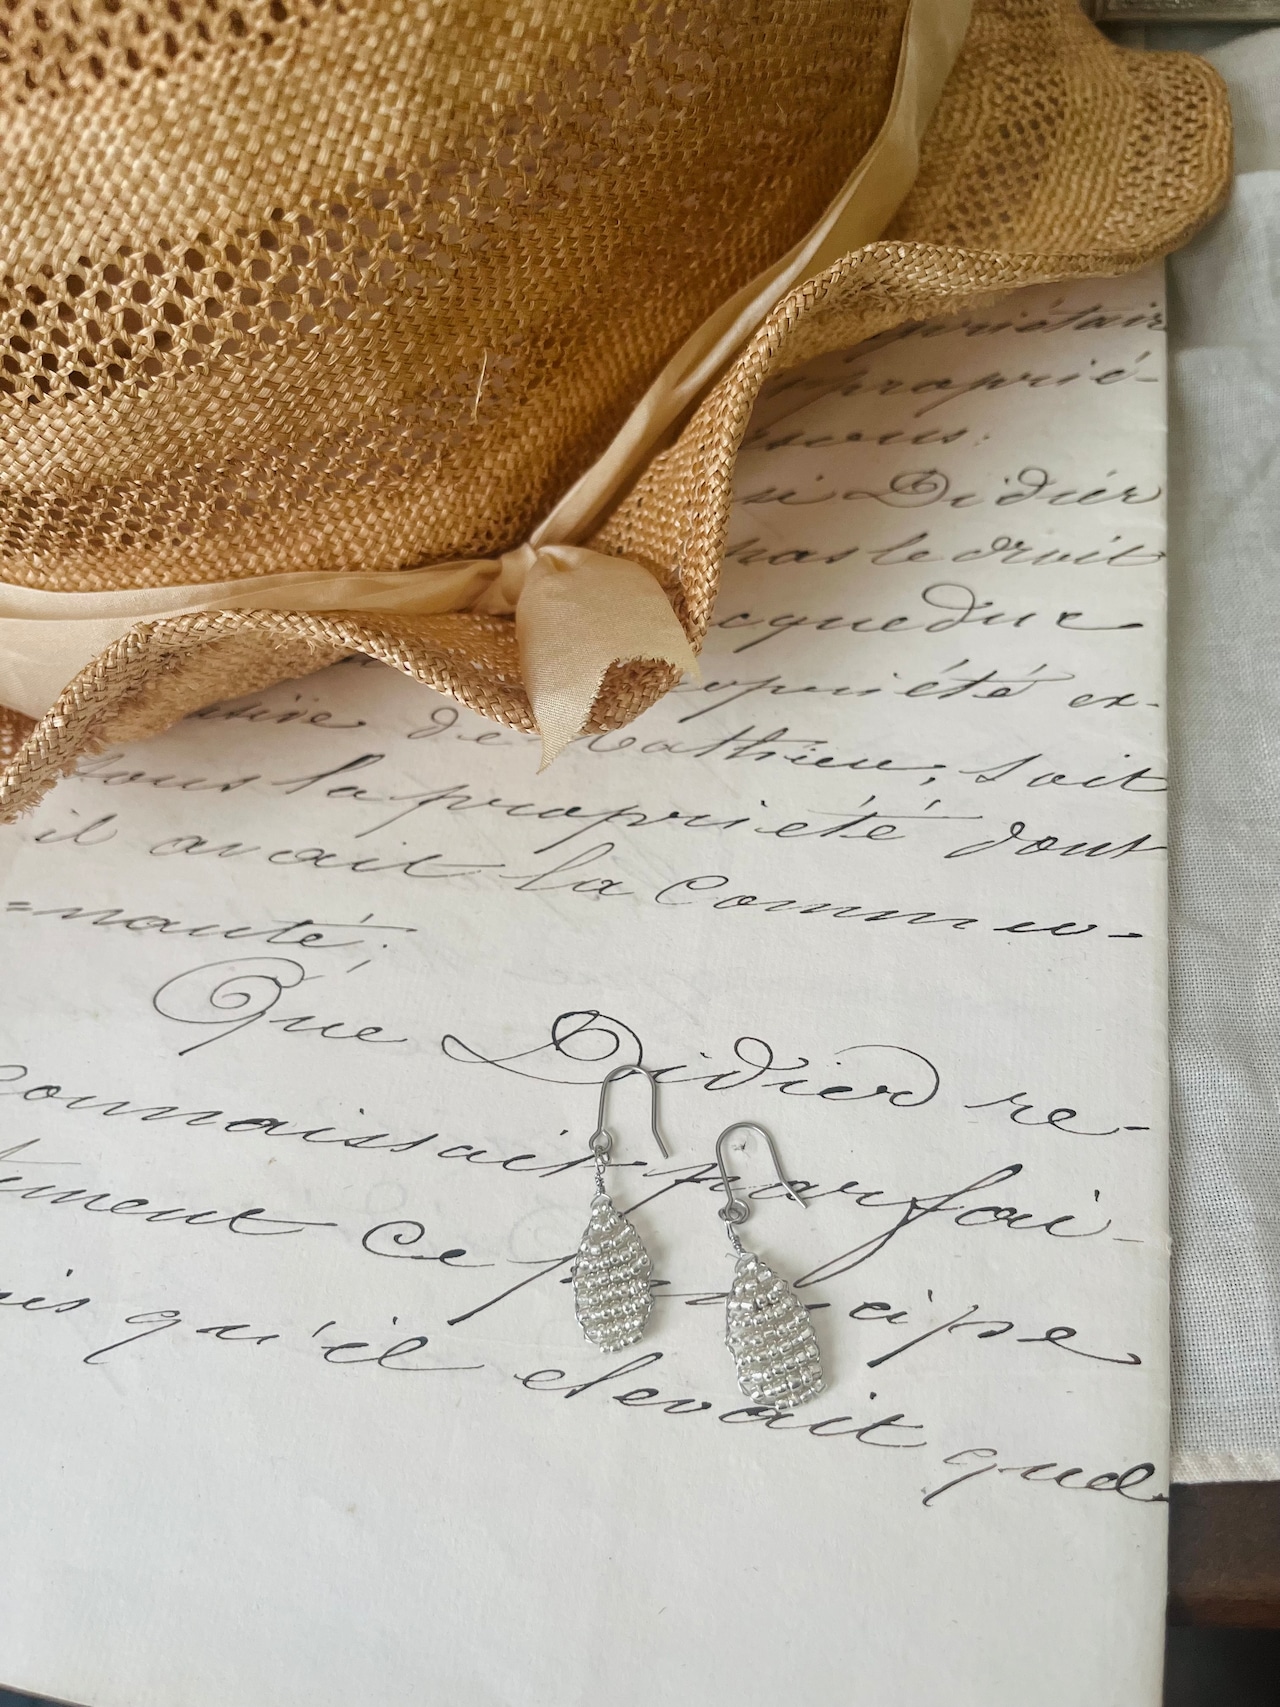 propriétair
proprié-
Didier
pas le droit
acqueduc
propriété ex-
de Mathieu, soit
sous la propriété dont
il avait la Commu-
=nauté;
Que Didier re-
connaissait parfai-
tement ce principe
qu'il elevait quel-